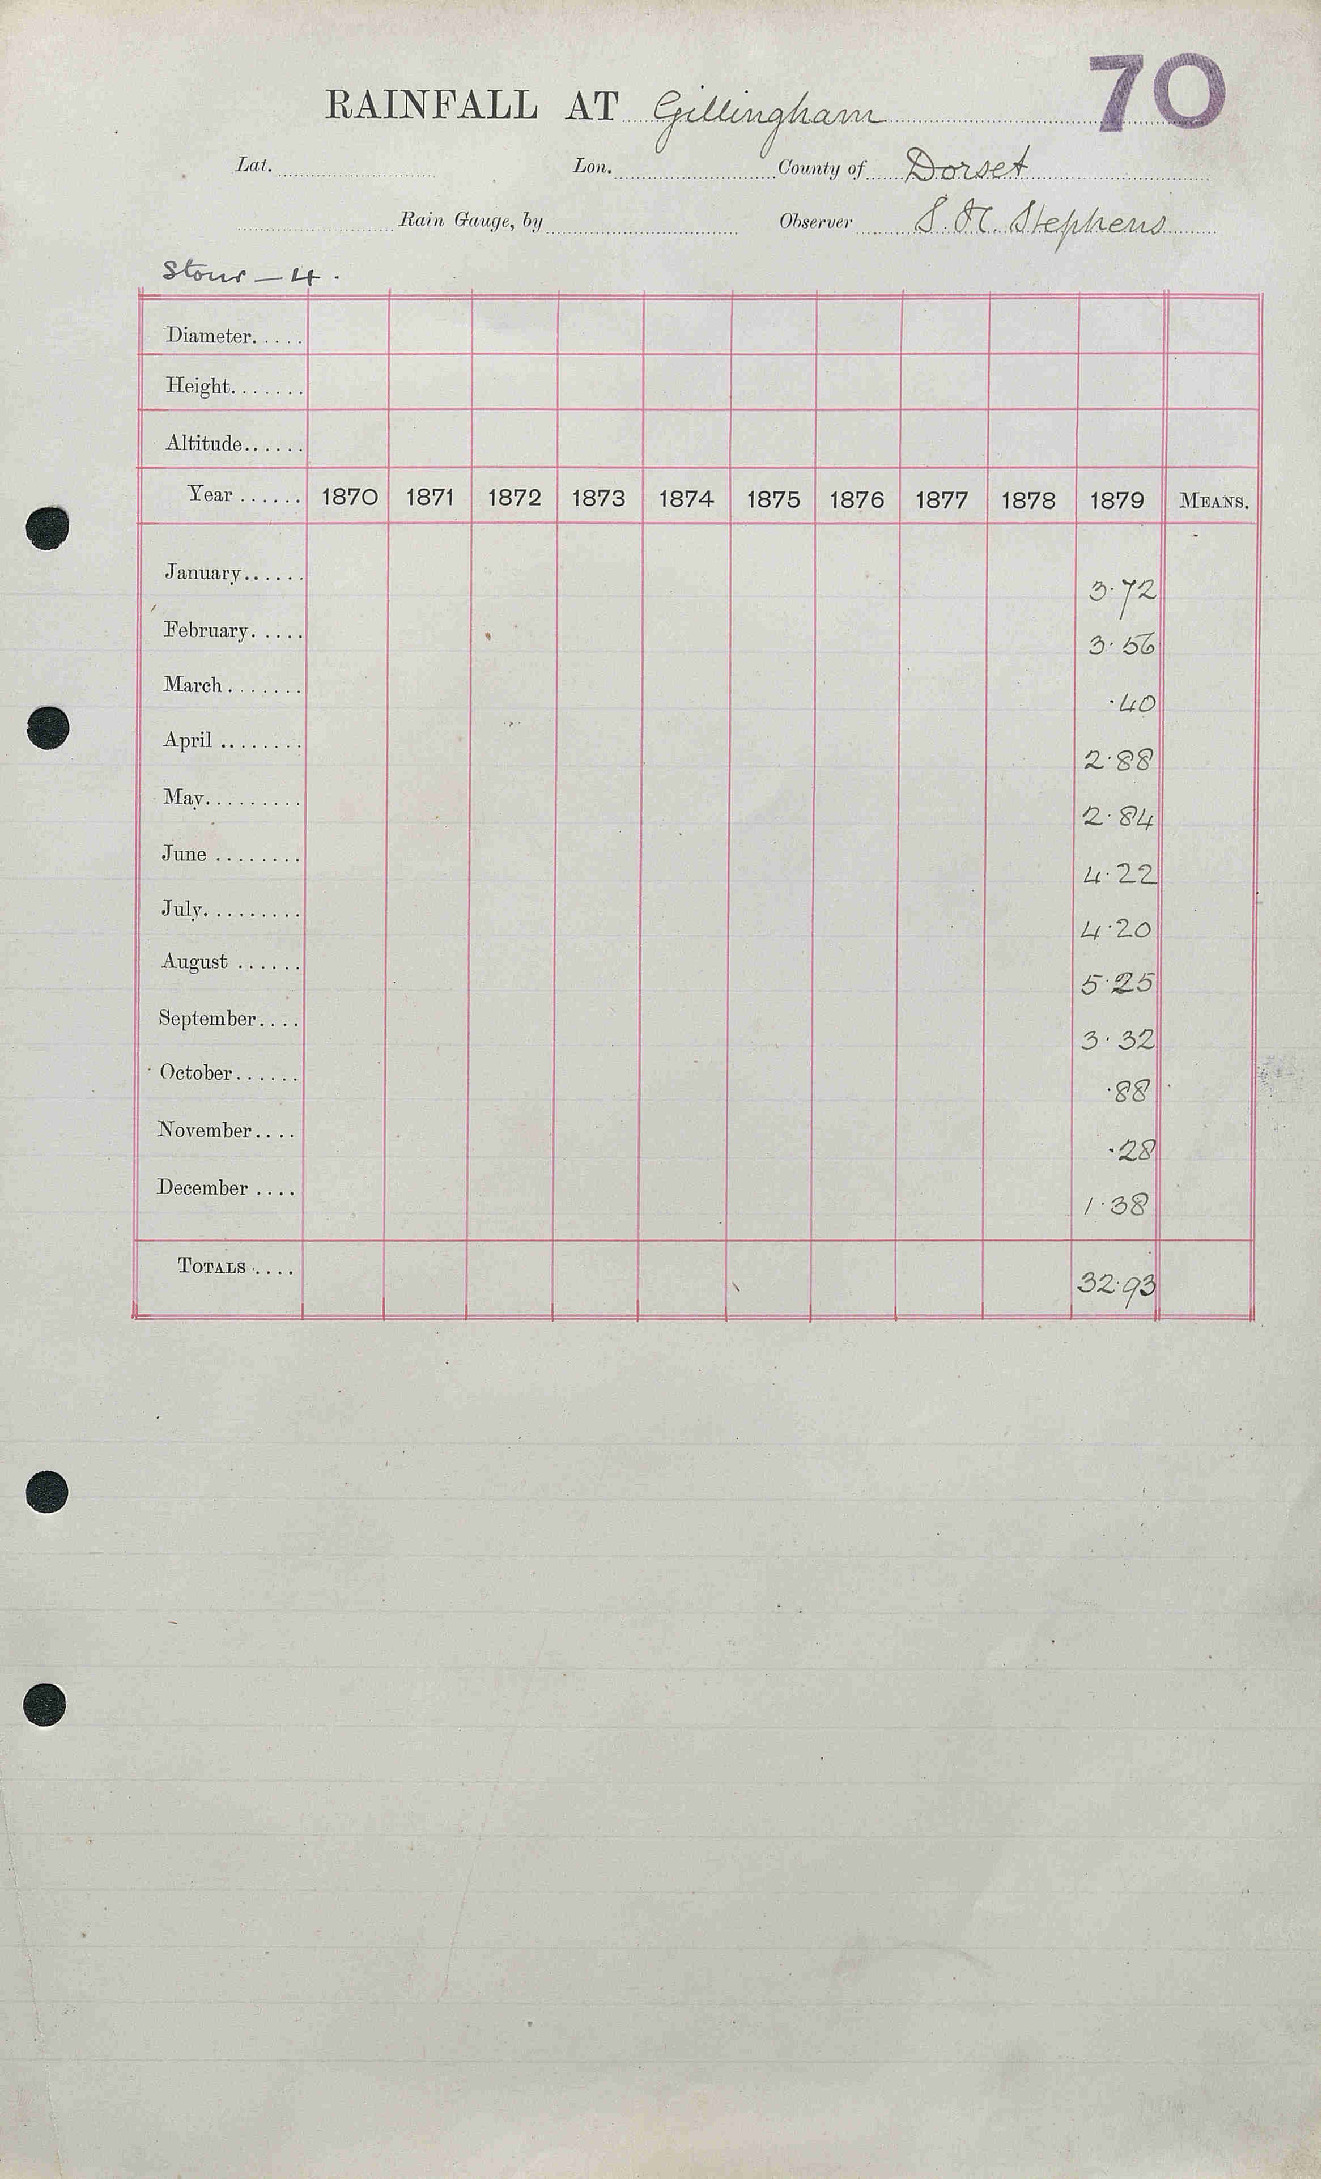 70
RAINFALL AT Gillingham
Lat. Lon. County of Dorset
Rain Gauge, by Observer S. H. Stephens
Stour — 4.
Diameter.....
Height.......
Altitude......
Year ...... 1870 1871 1872 1873 1874 1875 1876 1877 1878 1879 MEANS.
January...... 3.72
February..... 3.56
March....... .40
April ........ 2.88
May......... 2.84
June ........ 4.22
July......... 4.20
August ...... 5.25
September.... 3.32
October...... .88
November.... .28
December .... 1.38
TOTALS .... 32.93